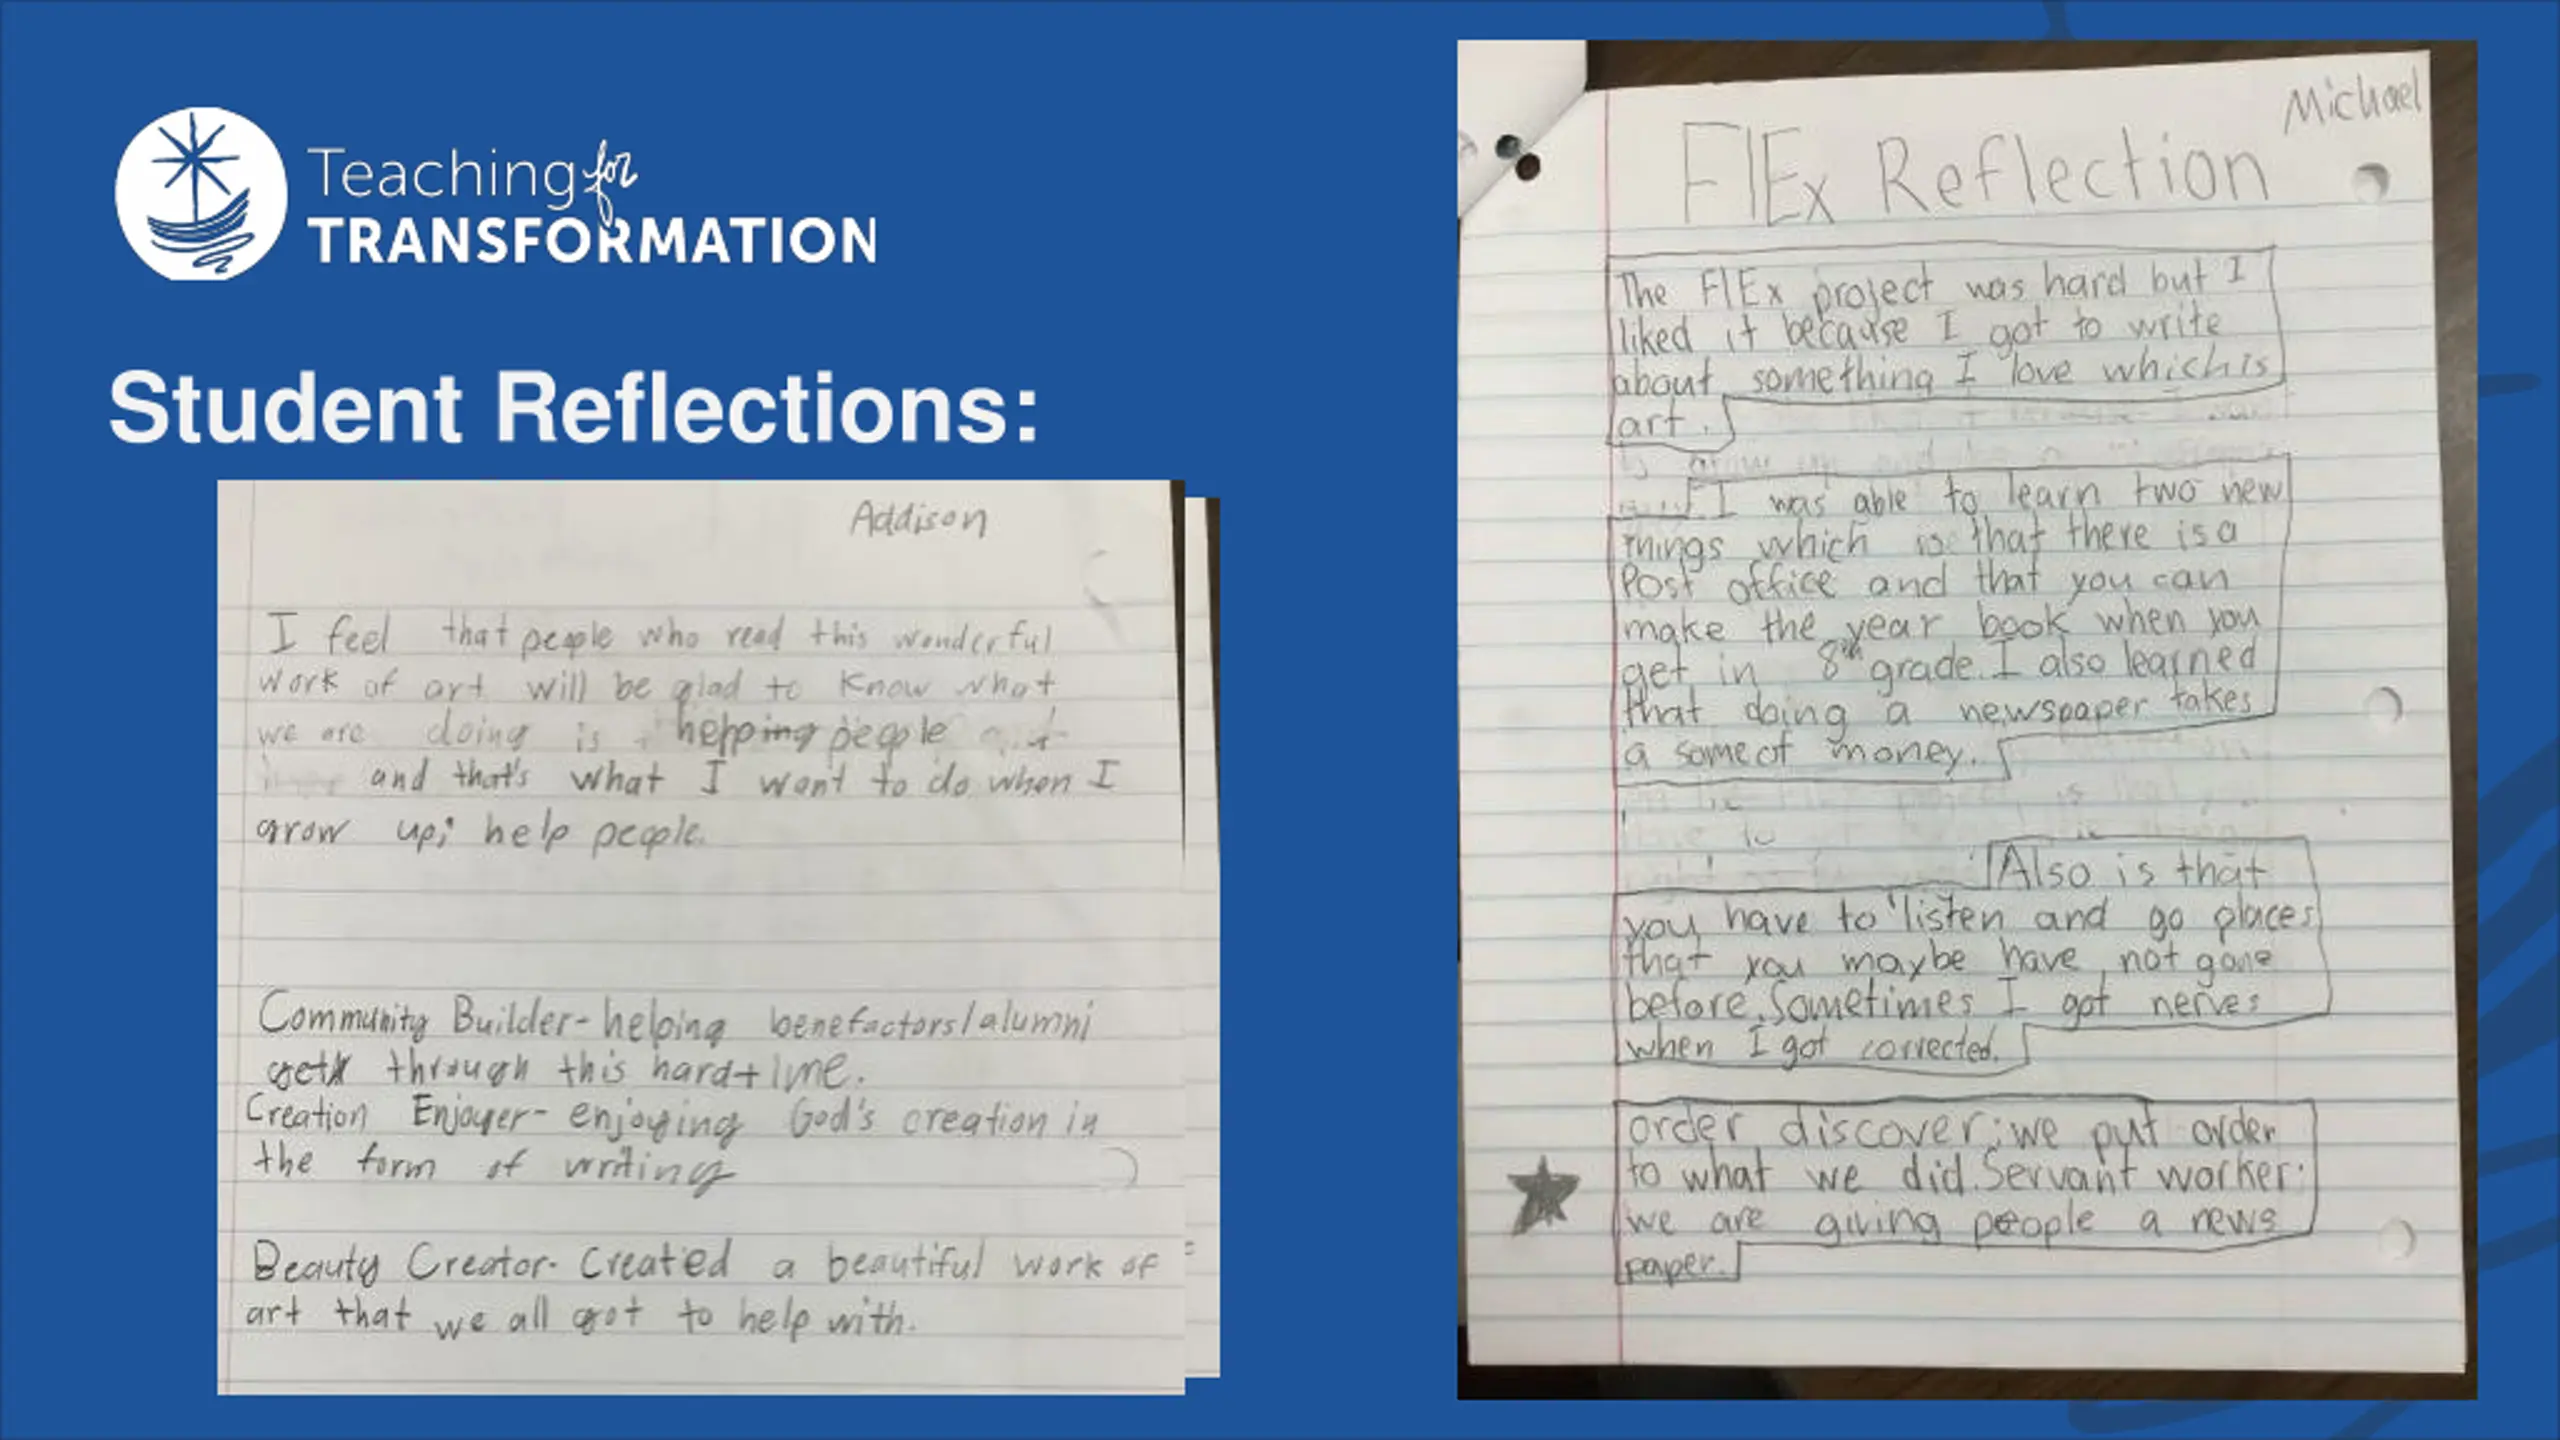 Teaching for
TRANSFORMATION
Student Reflections:
Addison
I feel that people who read this wonderful
work of art will be glad to know what
we are doing is helping people
and that's what I want to do when I
grow up; help people.
Community Builder- helping benefactors/alumni
get through this hard time.
Creation Enjoyer- enjoying God's creation in
the form of writing
Beauty Creator- Created a beautiful work of
art that we all got to help with.
Michael
FlEx Reflection
The FlEx project was hard but I
liked it because I got to write
about something I love which is
art.
I was able to learn two new
things which is that there is a
Post office and that you can
make the year book when you
get in 8th grade. I also learned
that doing a newspaper takes
a some of money.
Also is that
you have to listen and go places
that you maybe have not gone
before. Sometimes I got nerves
when I got corrected.
order discover: we put order
to what we did. Servant worker:
we are giving people a news
paper.